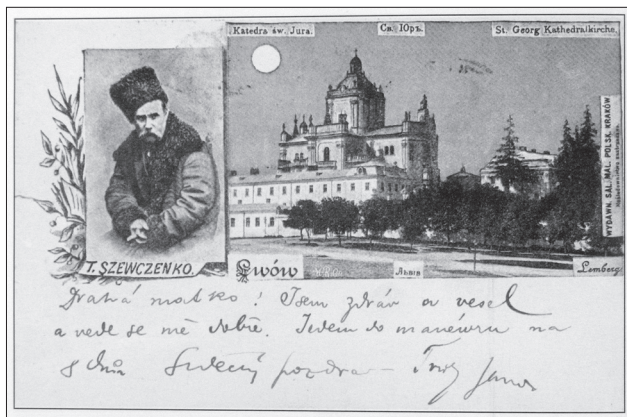 Katedra św. Jura.
Св. Юръ.
St. Georg Kathedralkirche.
WYDAWN. SAL. MAL. POLSK. KRAKÓW
T. SZEWCZENKO.
Lwów
Львів
Lemberg.
Drahá matko! Jsem zdráv a vesel
a vede se mě dobře. Jedem do manévru na
8 dnů Srdečný pozdrav